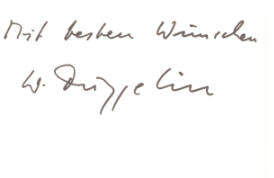 Mit besten Wünschen
W. Düggelin